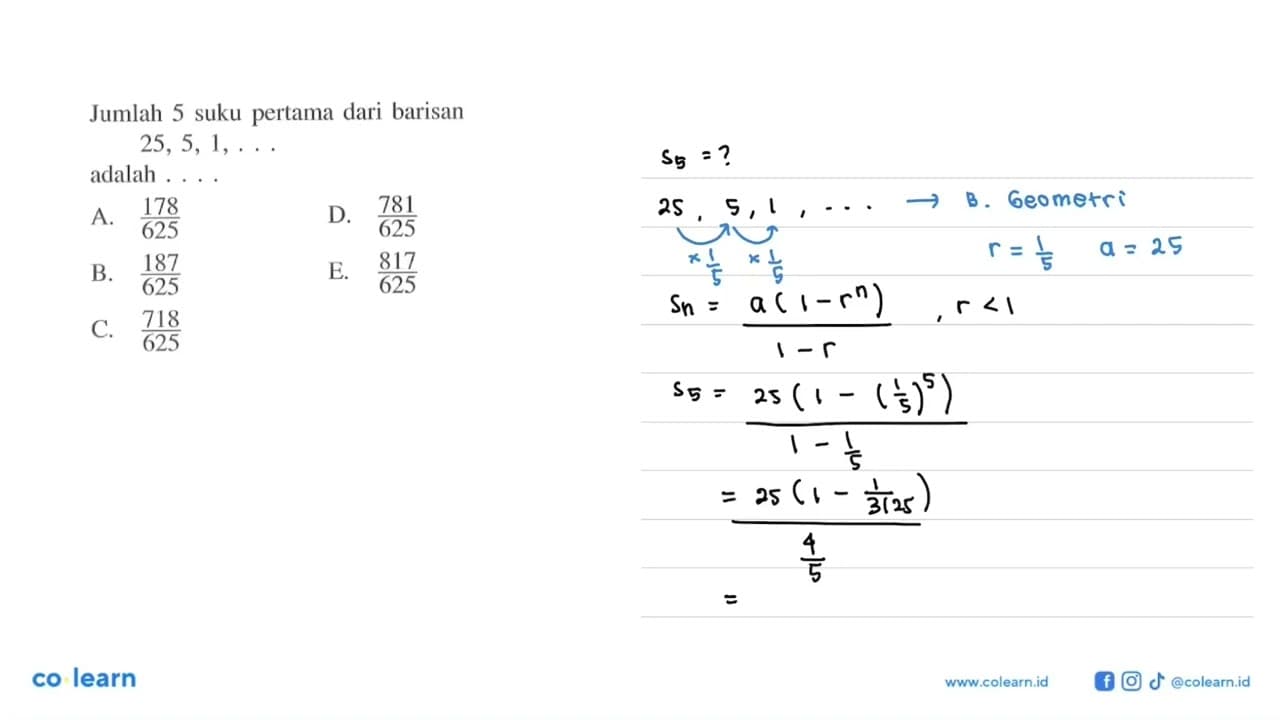 Jumlah 5 suku pertama dari barisan
25, 5, 1, . . .
adalah . . . .
A. 178/625
D. 781/625
B. 187/625
E. 817/625
C. 718/625
S5 = ?
25, 5, 1, ... → B. Geometri
× 1/5 × 1/5 r = 1/5 a = 25
Sn = a(1 - r^n) / 1 - r , r < 1
S5 = 25(1 - (1/5)^5) / 1 - 1/5
= 25(1 - 1/3125) / 4/5
=
co learn
www.colearn.id
@colearn.id